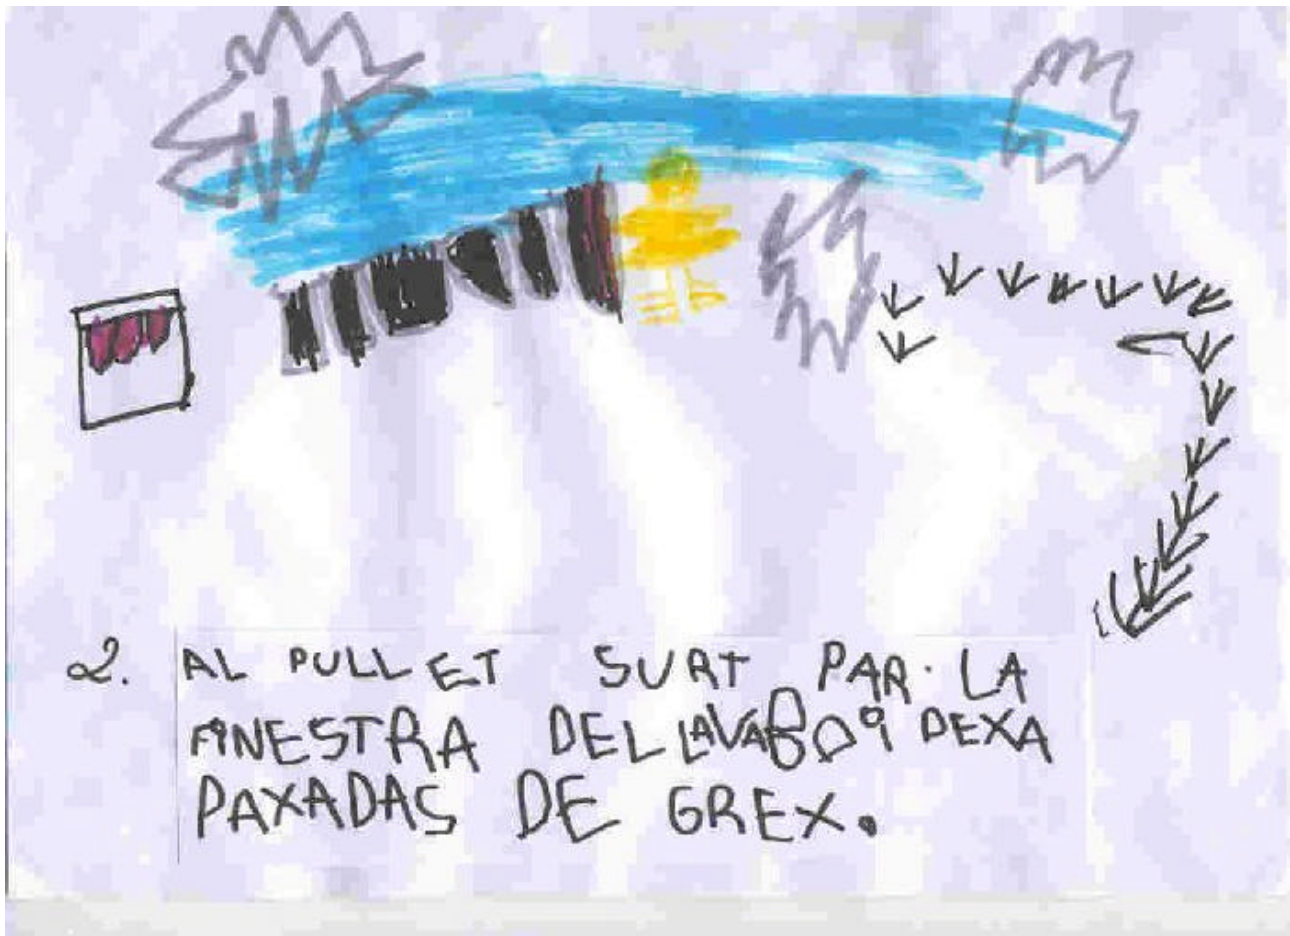 2. AL PULLET SURT PAR. LA
FINESTRA DEL LAVABO I DEXA
PAXADAS DE GREX.